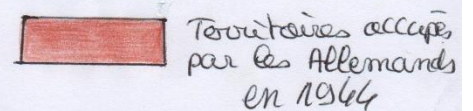 Territoires occupés
par les Allemands
en 1944